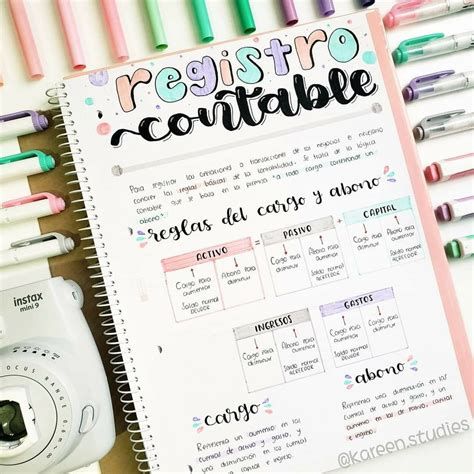 registro
contable
Para registrar las operaciones o transacciones de los negocios es necesario
conocer las reglas básicas de la contabilidad. Se trata de la lógica
contable que se basa en la premisa "a todo cargo corresponde un
abono".
reglas del cargo y abono
ACTIVO = PASIVO + CAPITAL
Cargo para aumentar
Abono para disminuir
Saldo normal DEUDOR
Cargo para disminuir
Abono para aumentar
Saldo normal ACREEDOR
Cargo para disminuir
Abono para aumentar
Saldo normal ACREEDOR
INGRESOS
GASTOS
Cargo para disminuir
Abono para aumentar
Saldo normal ACREEDOR
Cargo para aumentar
Abono para disminuir
Saldo normal DEUDOR
cargo
abono
Representa un aumento en las
cuentas de activo y gasto, y un
Representa una disminución en las
cuentas de activo y gasto, y un
aumento en las de pasivo, capital
e ingreso.
instax
mini 9
@kareen.studies